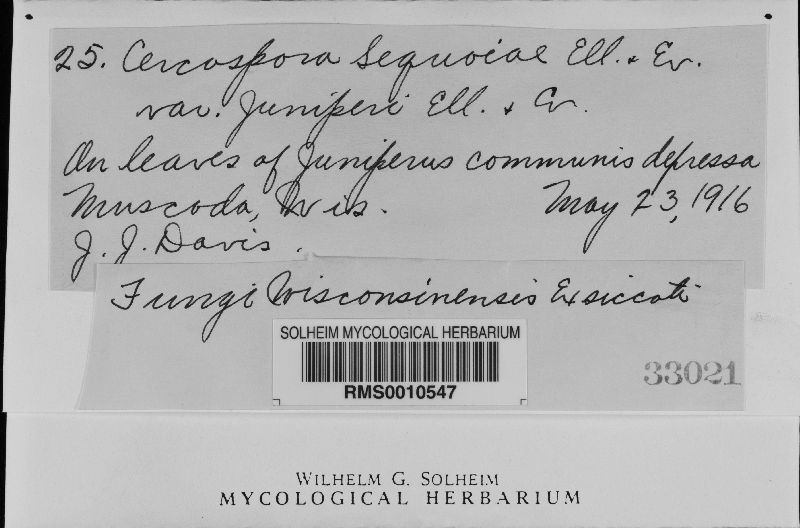 25. Cercospora Sequoiae Ell. & Ev.
var. Juniperi Ell. & Ev.
On leaves of Juniperus communis depressa
Muscoda, Wis. May 23, 1916
J. J. Davis.
Fungi Wisconsinensis Exsiccati
SOLHEIM MYCOLOGICAL HERBARIUM
RMS0010547
33021
WILHELM G. SOLHEIM
MYCOLOGICAL HERBARIUM